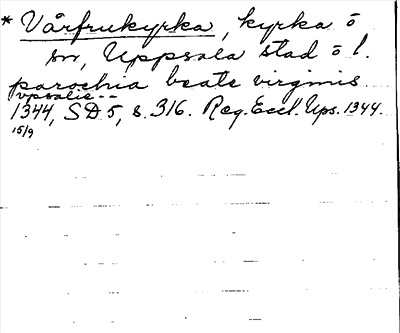 * Vårfrukyrka, kyrka o
sn, Uppsala stad o l.
parochia beate virginis
vpsalie --
1344, SD 5, s. 316. Reg. Eccl. Ups. 1344.
15/9